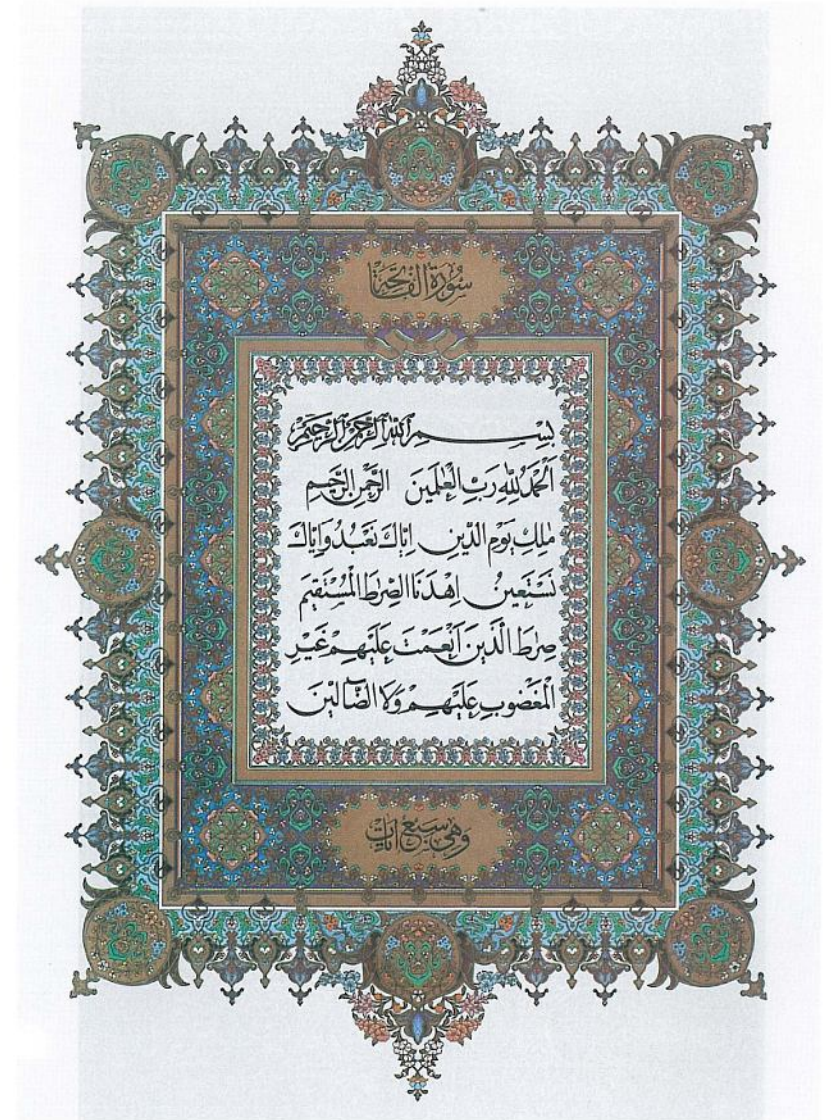 سُورَةُ الْفَاتِحَةِ
بِسْمِ اللّٰهِ الرَّحْمٰنِ الرَّحِيمِ
اَلْحَمْدُ لِلّٰهِ رَبِّ الْعٰلَمِينَ الرَّحْمٰنِ الرَّحِيمِ
مٰلِكِ يَوْمِ الدِّينِ اِيَّاكَ نَعْبُدُ وَاِيَّاكَ
نَسْتَعِينُ اِهْدِنَا الصِّرٰطَ الْمُسْتَقِيمَ
صِرٰطَ الَّذِينَ اَنْعَمْتَ عَلَيْهِمْ غَيْرِ
الْمَغْضُوبِ عَلَيْهِمْ وَلَا الضَّآلِّينَ
وَهِيَ سَبْعُ اٰيَاتٍ